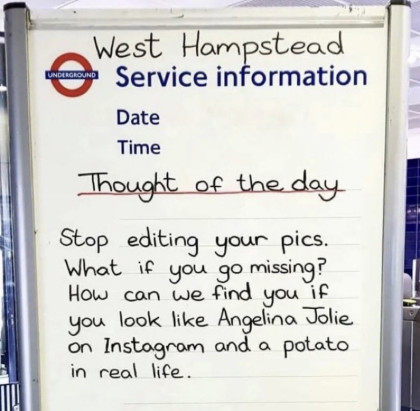 West Hampstead
UNDERGROUND
Service information
Date
Time
Thought of the day
Stop editing your pics.
What if you go missing?
How can we find you if
you look like Angelina Jolie
on Instagram and a potato
in real life.